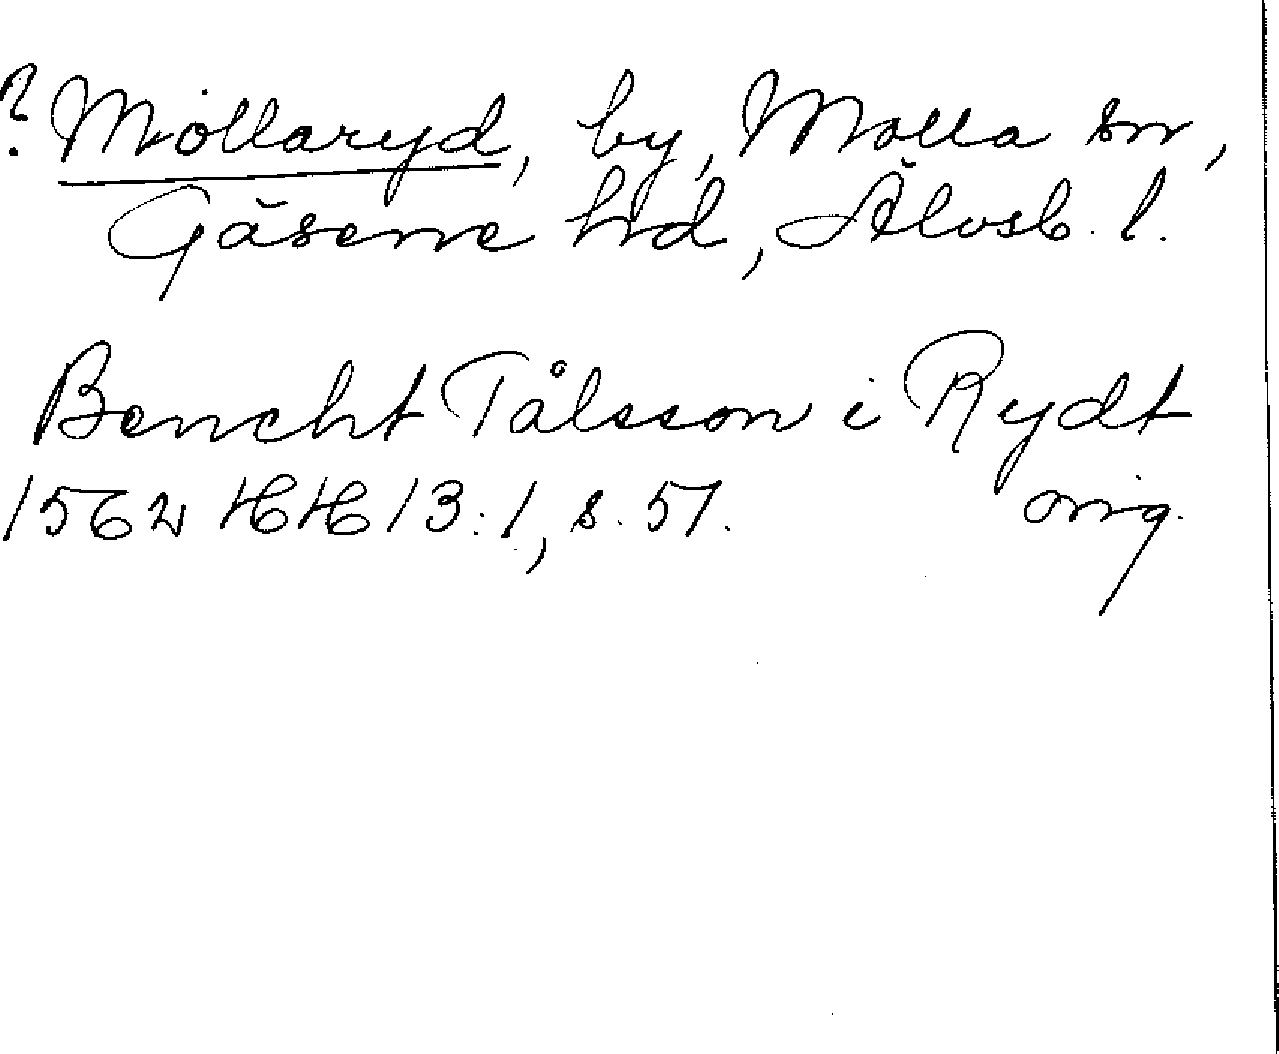 ? Möllaryd, by, Molla sn,
Gäsene hd, Älvsb. l.
Bencht Tålsson i Rydt
1562 HH 13:1, s. 57. orig.